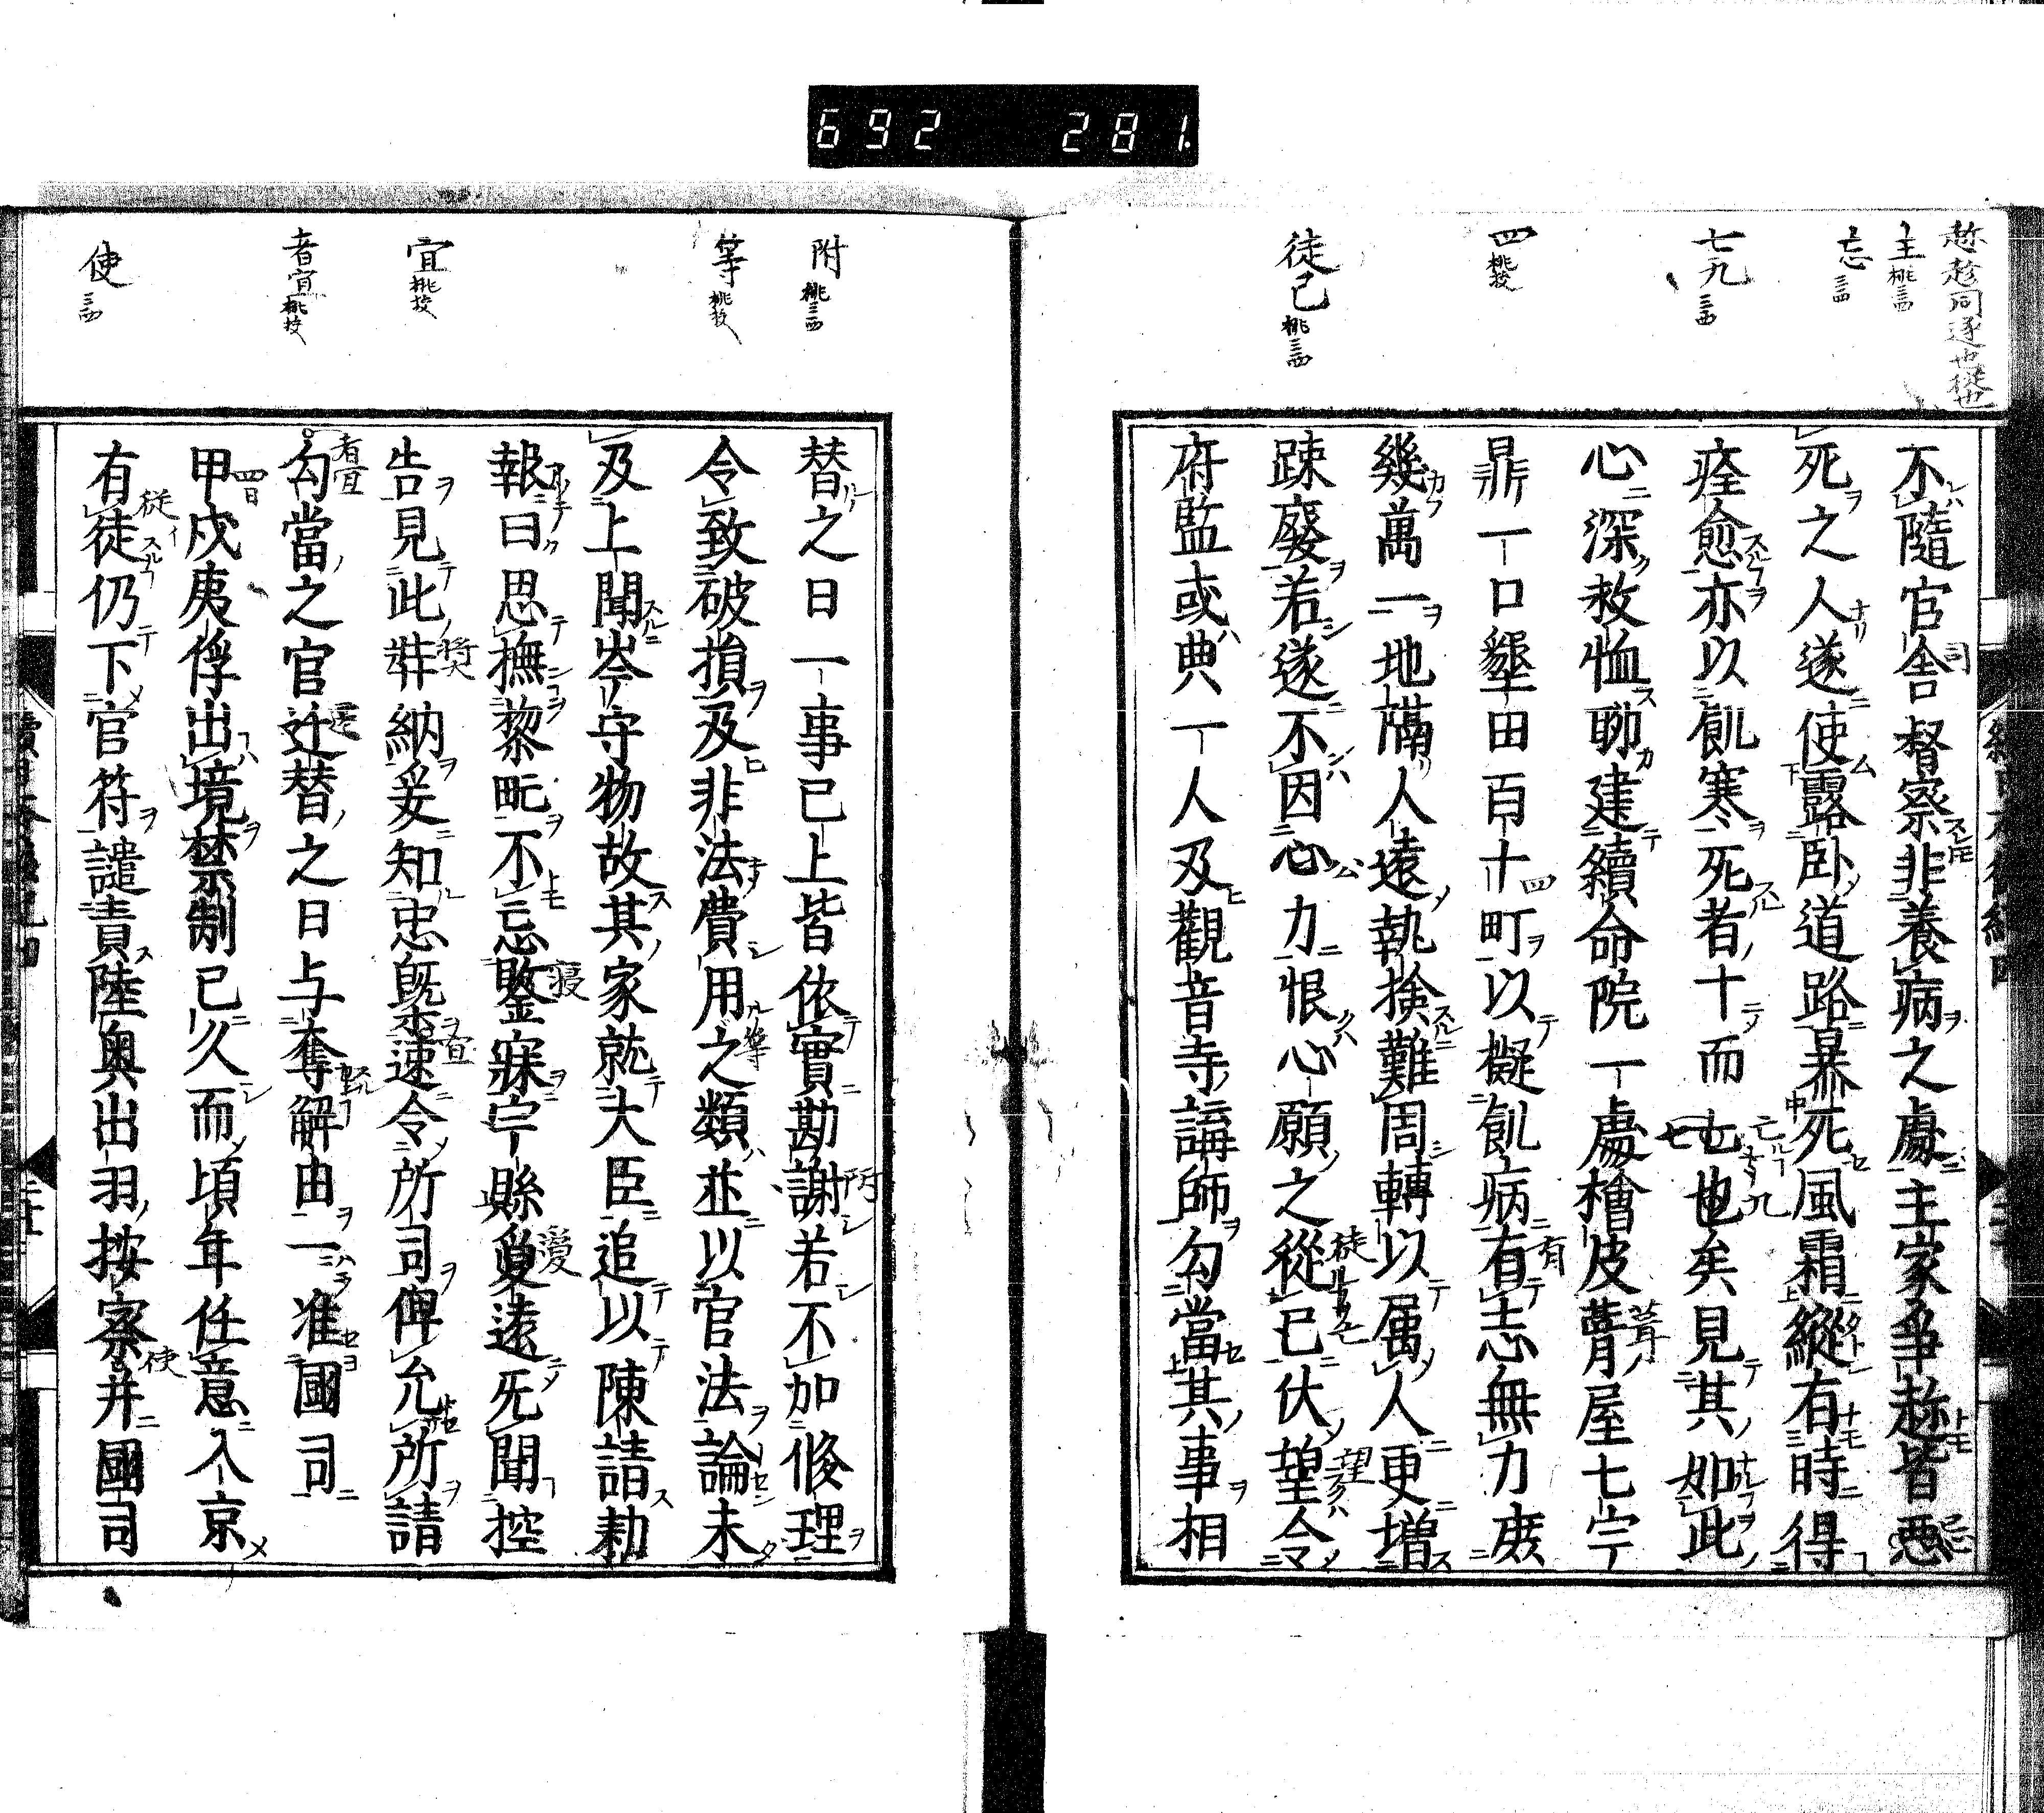 692 281
趂趁同逐也從也
主 桃三西
忘 三西
七九 三西
四 桃校
徒己 桃三西
不隨官舍督察非養病之處主家爭趂皆惡
死之人遂使露卧道路暴死風霜縱有時得
痊愈亦以飢寒死者十而七也矣見其如此
心深救恤聊建續命院一處檜皮葺屋七宇
鼎一口墾田百十町以擬飢病有志無力庻
幾萬一地隔人遠執撿難周轉以属人更增
踈廢若遂不因心力恨心願之從已伏望令
府監或典一人及觀音寺講師勾當其事相
附 桃三西
等 桃校
宜 桃校
者宜 桃校
使 三西
替之日一事已上皆依實勘謝若不加修理
令致破損及非法費用之類並以官法論未
及上聞岑守物故其家就大臣追以陳請勅
報曰思撫黎甿不忘鑒寐宇縣夐遠死聞控
告見此弉納爰知忠槩速令所司俾允所請
勾當之官遷替之日与奪解由一准國司
甲戌夷俘出境禁制已久而頃年任意入京
有徒仍下官符譴責陸奥出羽按察并國司